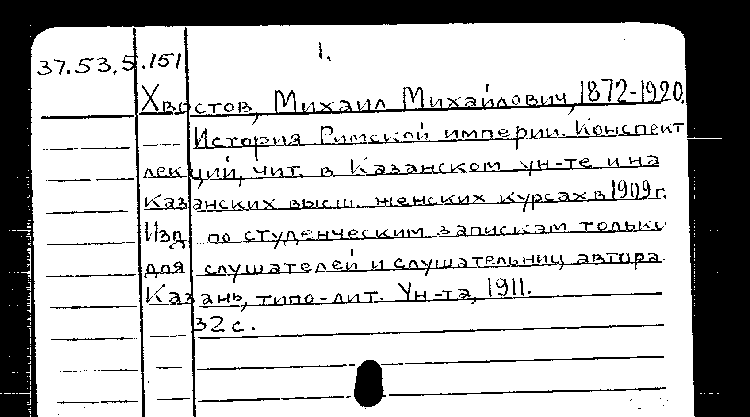 1.
37.53.5.151
Хвостов, Михаил Михайлович, 1872-1920.
История Римской империи. Конспект
лекций, чит. в Казанском ун-те и на
Казанских высш. женских курсах в 1909 г.
Изд. по студенческим запискам только
для слушателей и слушательниц автора.
Казань, типо-лит. Ун-та, 1911.
32 с.